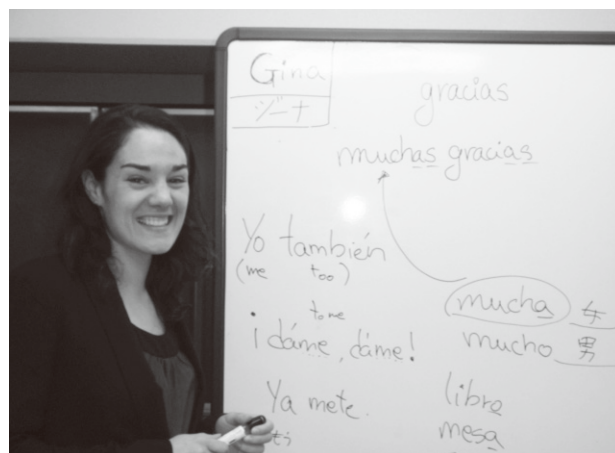 Gina
ジーナ
gracias
muchas gracias
Yo también
(me too)
to me
¡dáme, dáme!
Ya mete.
mucha 女
mucho 男
libro
mesa